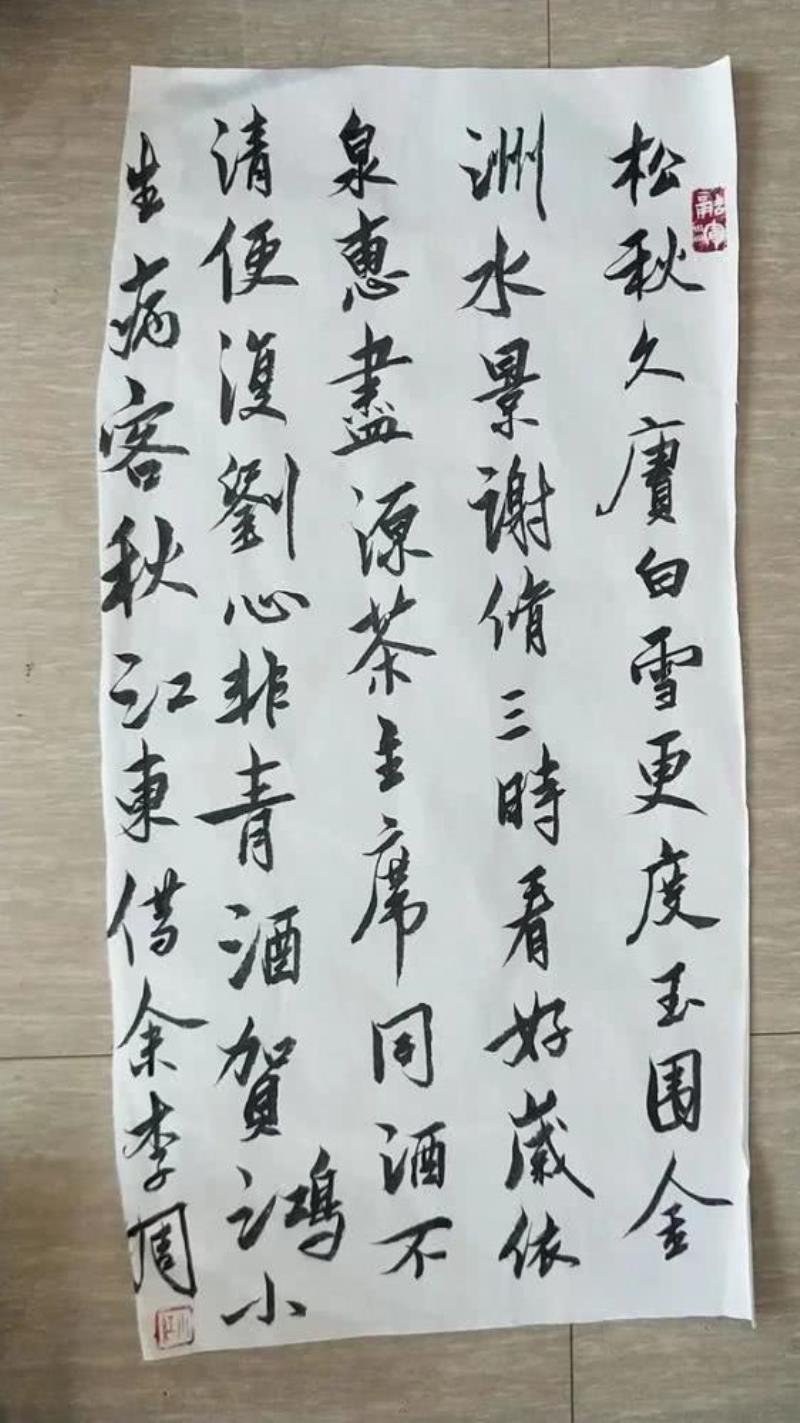 松秋久賡白雪更度玉围金
洲水景谢脩三時看好歲依
泉惠盡源茶主席同酒不
清便復劉心非青酒賀鴻小
生病客秋江東借余李周